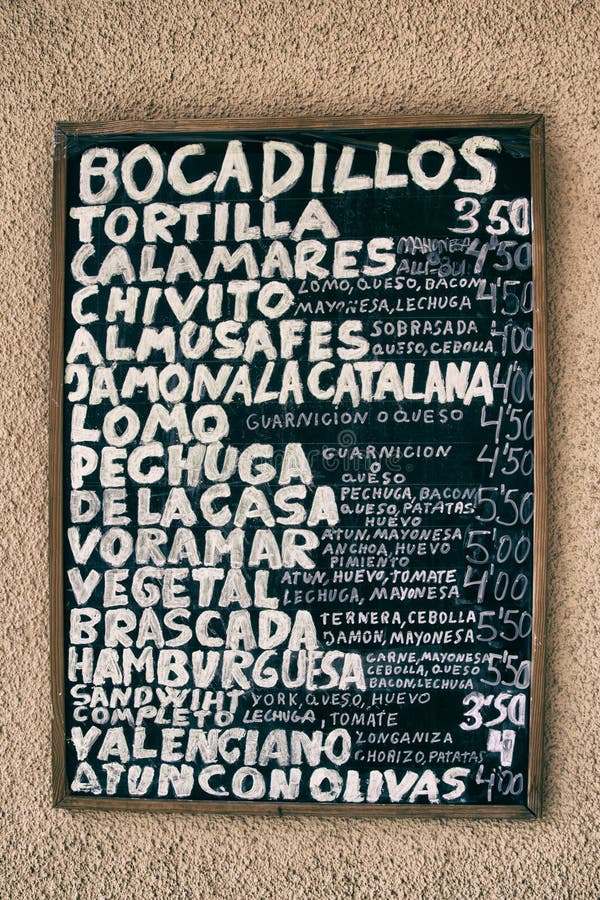 BOCADILLOS
TORTILLA 3,50
CALAMARES MAHONESA 4'50
ALLI-OLI
CHIVITO LOMO, QUESO, BACON 4'50
MAYONESA, LECHUGA
ALMUSAFES SOBRASADA 4'00
QUESO, CEBOLLA
JAMON A LA CATALANA 4'00
LOMO GUARNICION O QUESO 4'50
PECHUGA GUARNICION 4'50
O
QUESO
DE LA CASA PECHUGA, BACON 5'50
QUESO, PATATAS
HUEVO
VORAMAR ATUN, MAYONESA 5'00
ANCHOA, HUEVO
PIMIENTO
VEGETAL ATUN, HUEVO, TOMATE 4'00
LECHUGA, MAYONESA
BRASCADA TERNERA, CEBOLLA 5'50
JAMON, MAYONESA
HAMBURGUESA CARNE, MAYONESA 5'50
CEBOLLA, QUESO
BACON, LECHUGA
SANDWIHT YORK, QUESO, HUEVO 3'50
COMPLETO LECHUGA, TOMATE
VALENCIANO LONGANIZA 4
CHORIZO, PATATAS
ATUN CON OLIVAS 4'00